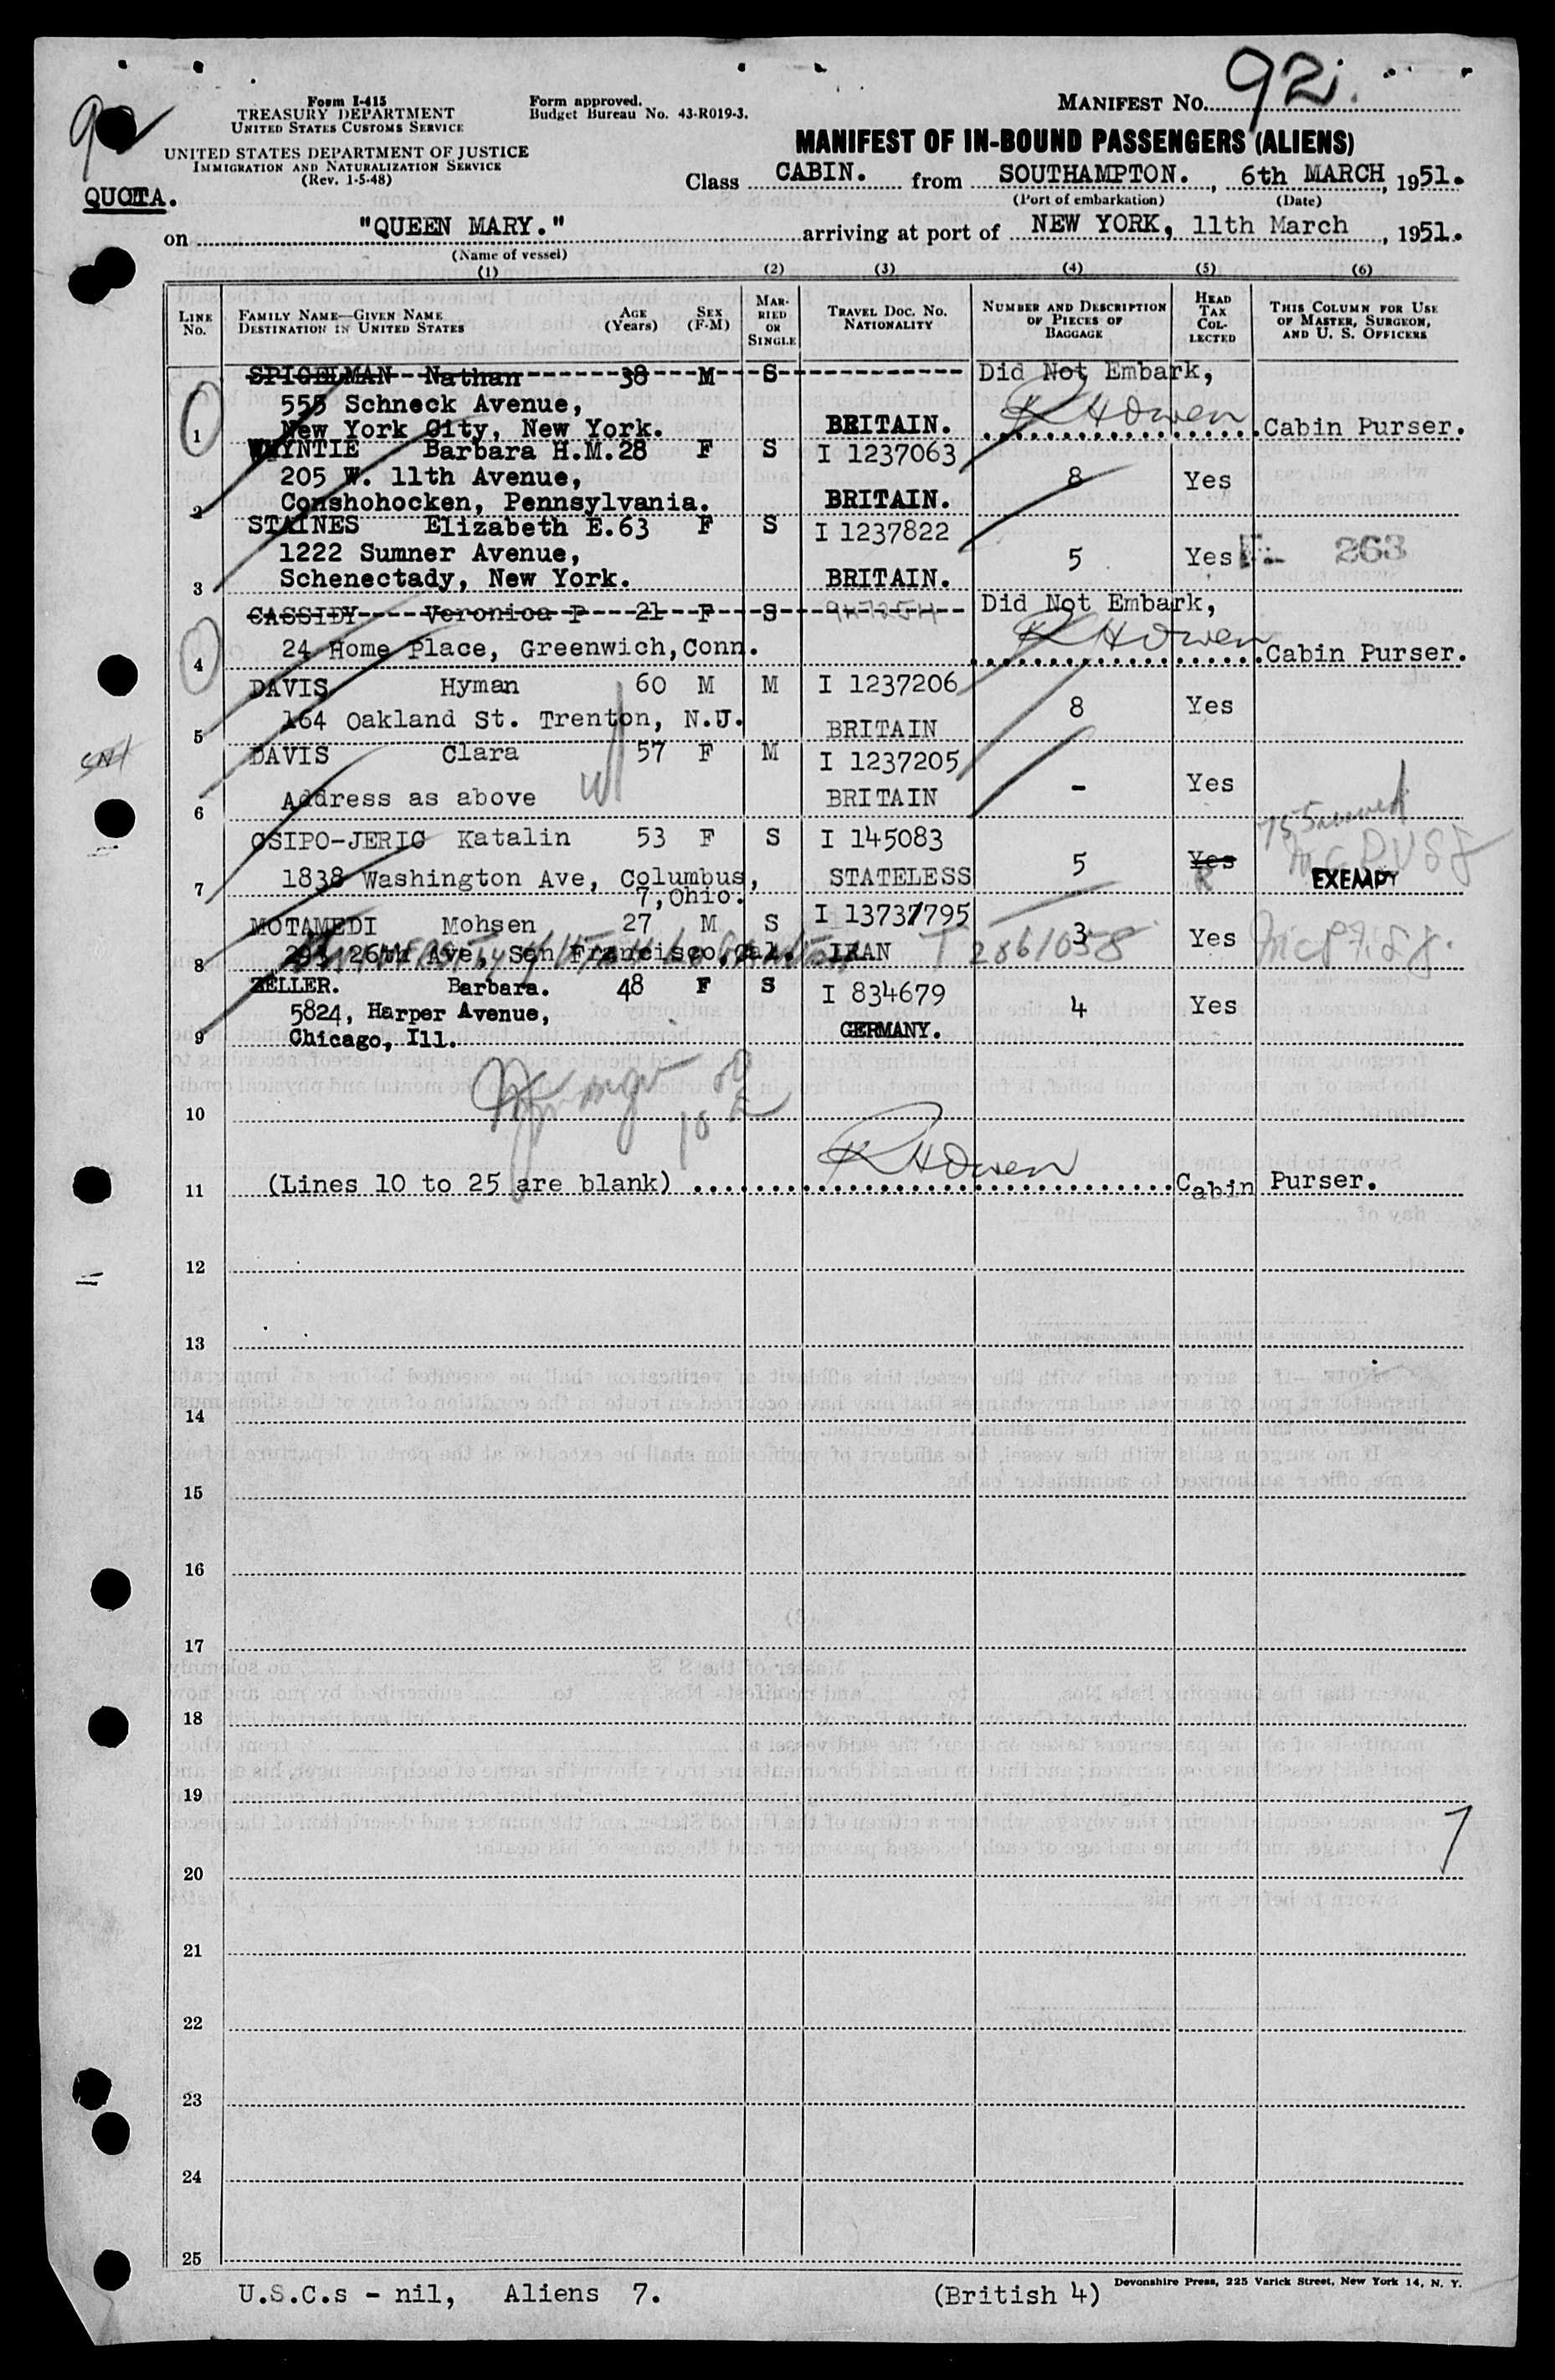 92
Form I-415
TREASURY DEPARTMENT
UNITED STATES CUSTOMS SERVICE
UNITED STATES DEPARTMENT OF JUSTICE
IMMIGRATION AND NATURALIZATION SERVICE
(Rev. 1-5-48)
Form approved.
Budget Bureau No. 43-R019-3.
MANIFEST NO. 92
MANIFEST OF IN-BOUND PASSENGERS (ALIENS)
QUOTA.
Class CABIN. from SOUTHAMPTON., 6th MARCH, 1951.
(Port of embarkation) (Date)
on "QUEEN MARY." arriving at port of NEW YORK, 11th March, 1951.
(Name of vessel)
(1) (2) (3) (4) (5) (6)
LINE No. FAMILY NAME—GIVEN NAME DESTINATION IN UNITED STATES AGE (Years) SEX (F-M) MARRIED OR SINGLE TRAVEL DOC. NO. NATIONALITY NUMBER AND DESCRIPTION OF PIECES OF BAGGAGE HEAD TAX COLLECTED THIS COLUMN FOR USE OF MASTER, SURGEON, AND U. S. OFFICERS
SPIGELMAN Nathan 38 M S Did Not Embark,
555 Schneck Avenue,
1 New York City, New York. BRITAIN. R H Owen Cabin Purser.
WHYNTIE Barbara H.M. 28 F S I 1237063
205 W. 11th Avenue, 8 Yes
2 Conshohocken, Pennsylvania. BRITAIN.
STAINES Elizabeth E. 63 F S I 1237822
1222 Sumner Avenue, 5 Yes 263
3 Schenectady, New York. BRITAIN.
CASSIDY Veronica P 21 F S Did Not Embark,
4 24 Home Place, Greenwich, Conn. R H Owen Cabin Purser.
DAVIS Hyman 60 M M I 1237206 8 Yes
5 164 Oakland St. Trenton, N.J. BRITAIN
DAVIS Clara 57 F M I 1237205 - Yes
6 Address as above BRITAIN
OSIPO-JERIC Katalin 53 F S I 145083 5 Yes
7 1838 Washington Ave, Columbus, STATELESS EXEMPT
7, Ohio.
MOTAMEDI Mohsen 27 M S I 13737795 3 Yes
8 26th Ave, San Francisco, Cal. IRAN T 2861058
ZELLER. Barbara. 48 F S I 834679 4 Yes
5824, Harper Avenue,
9 Chicago, Ill. GERMANY.
10
11 (Lines 10 to 25 are blank) R H Owen Cabin Purser.
12
13
14
15
16
17
18
19
7
20
21
22
23
24
25
U.S.C.s - nil, Aliens 7. (British 4)
Devonshire Press, 225 Varick Street, New York 14, N. Y.